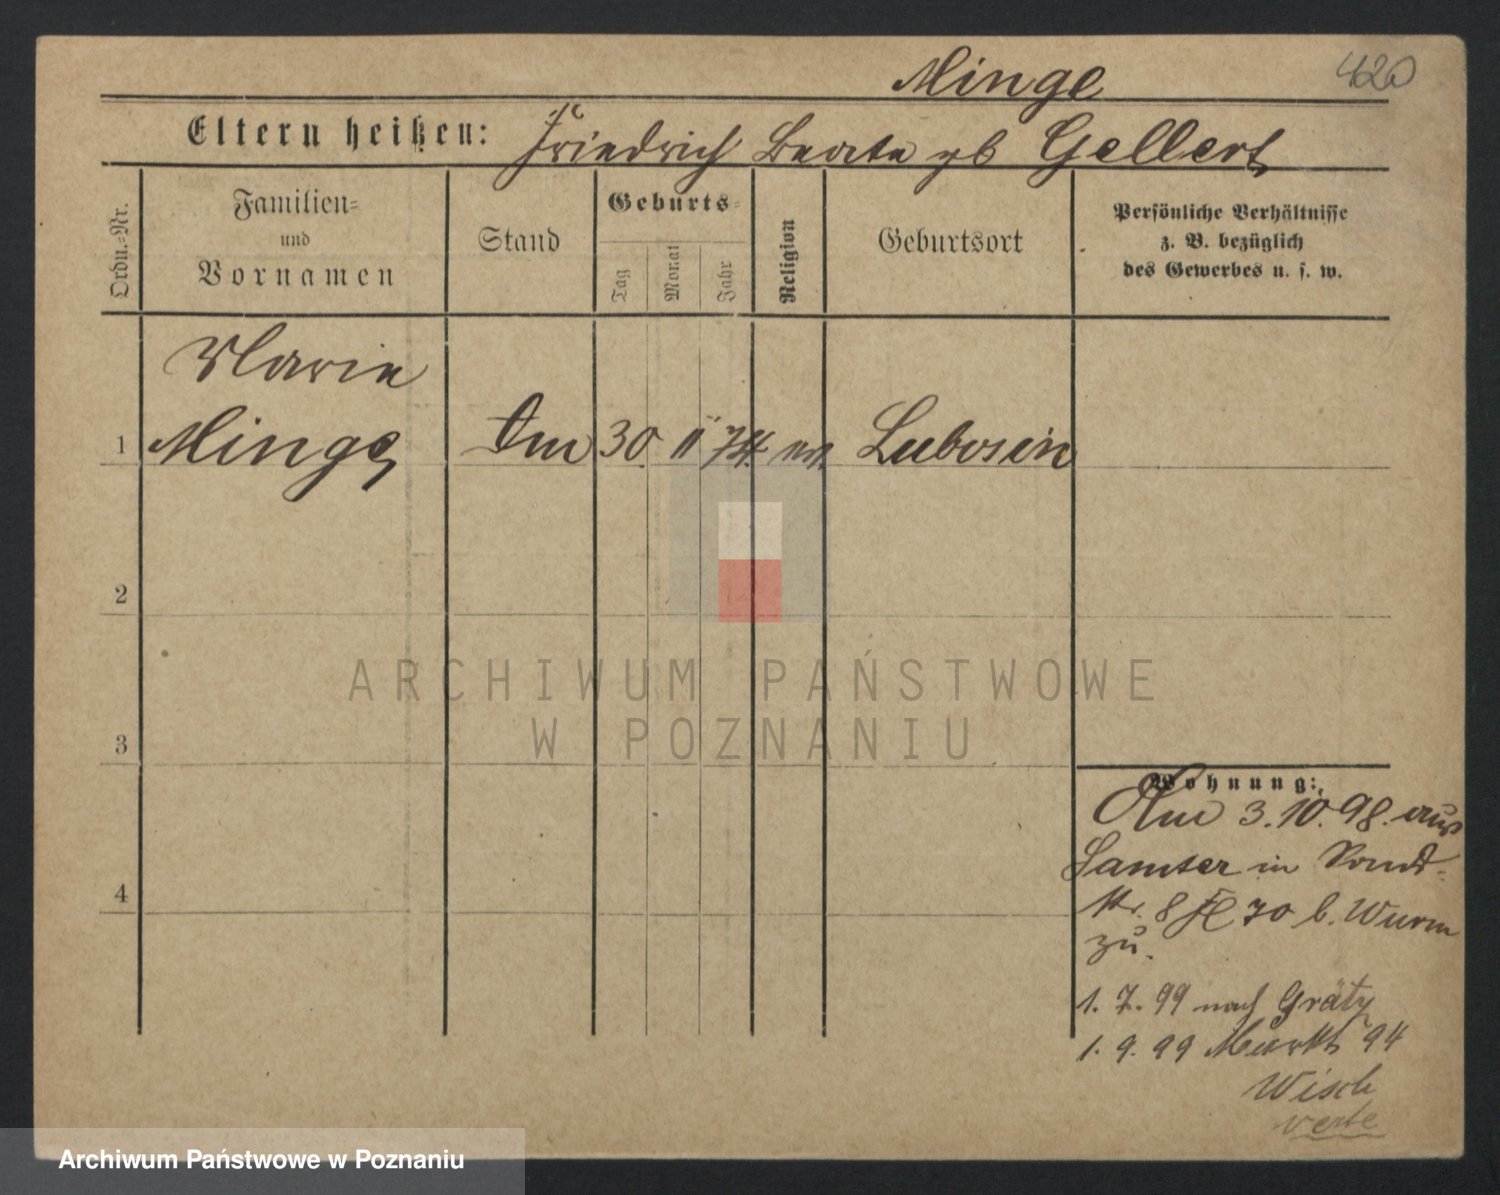 Minge
420
Eltern heißen: Friedrich Beate gb Gellert
Ordn.=Nr.
Familien=
und
Vornamen
Stand
Geburts=
Tag
Monat
Jahr
Religion
Geburtsort
Persönliche Verhältnisse
z. B. bezüglich
des Gewerbes u. s. w.
Marie
1 Minge 30 11 74 Lubosin
2
3
4
Wohnung:
Am 3.10.98. aus
Samter in
str. 8 70 b. Wurm
zu.
1. 7. 99 nach Grätz
1. 9. 99 Markt 94
Wisch
verte
ARCHIWUM PAŃSTWOWE
W POZNANIU
Archiwum Państwowe w Poznaniu